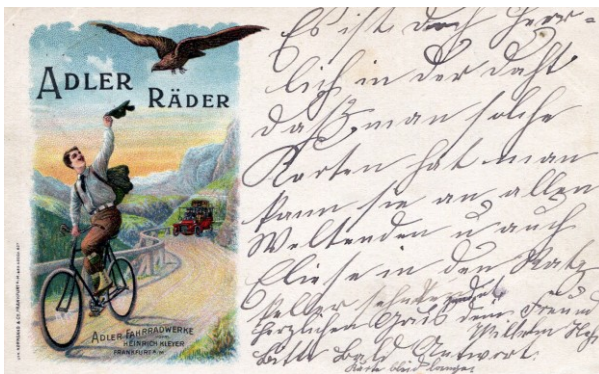 ADLER
RÄDER
ADLER FAHRRADWERKE
HEINRICH KLEYER
FRANKFURT A/M
Es ist doch herr-
lich in der
daß man solche
Karten hat man
kann sie an allen
Weltenden u auch
Eliese in den Ratz
keller
herzlichen Gruß dein Freund
Wilhelm
Bitte bald Antwort.